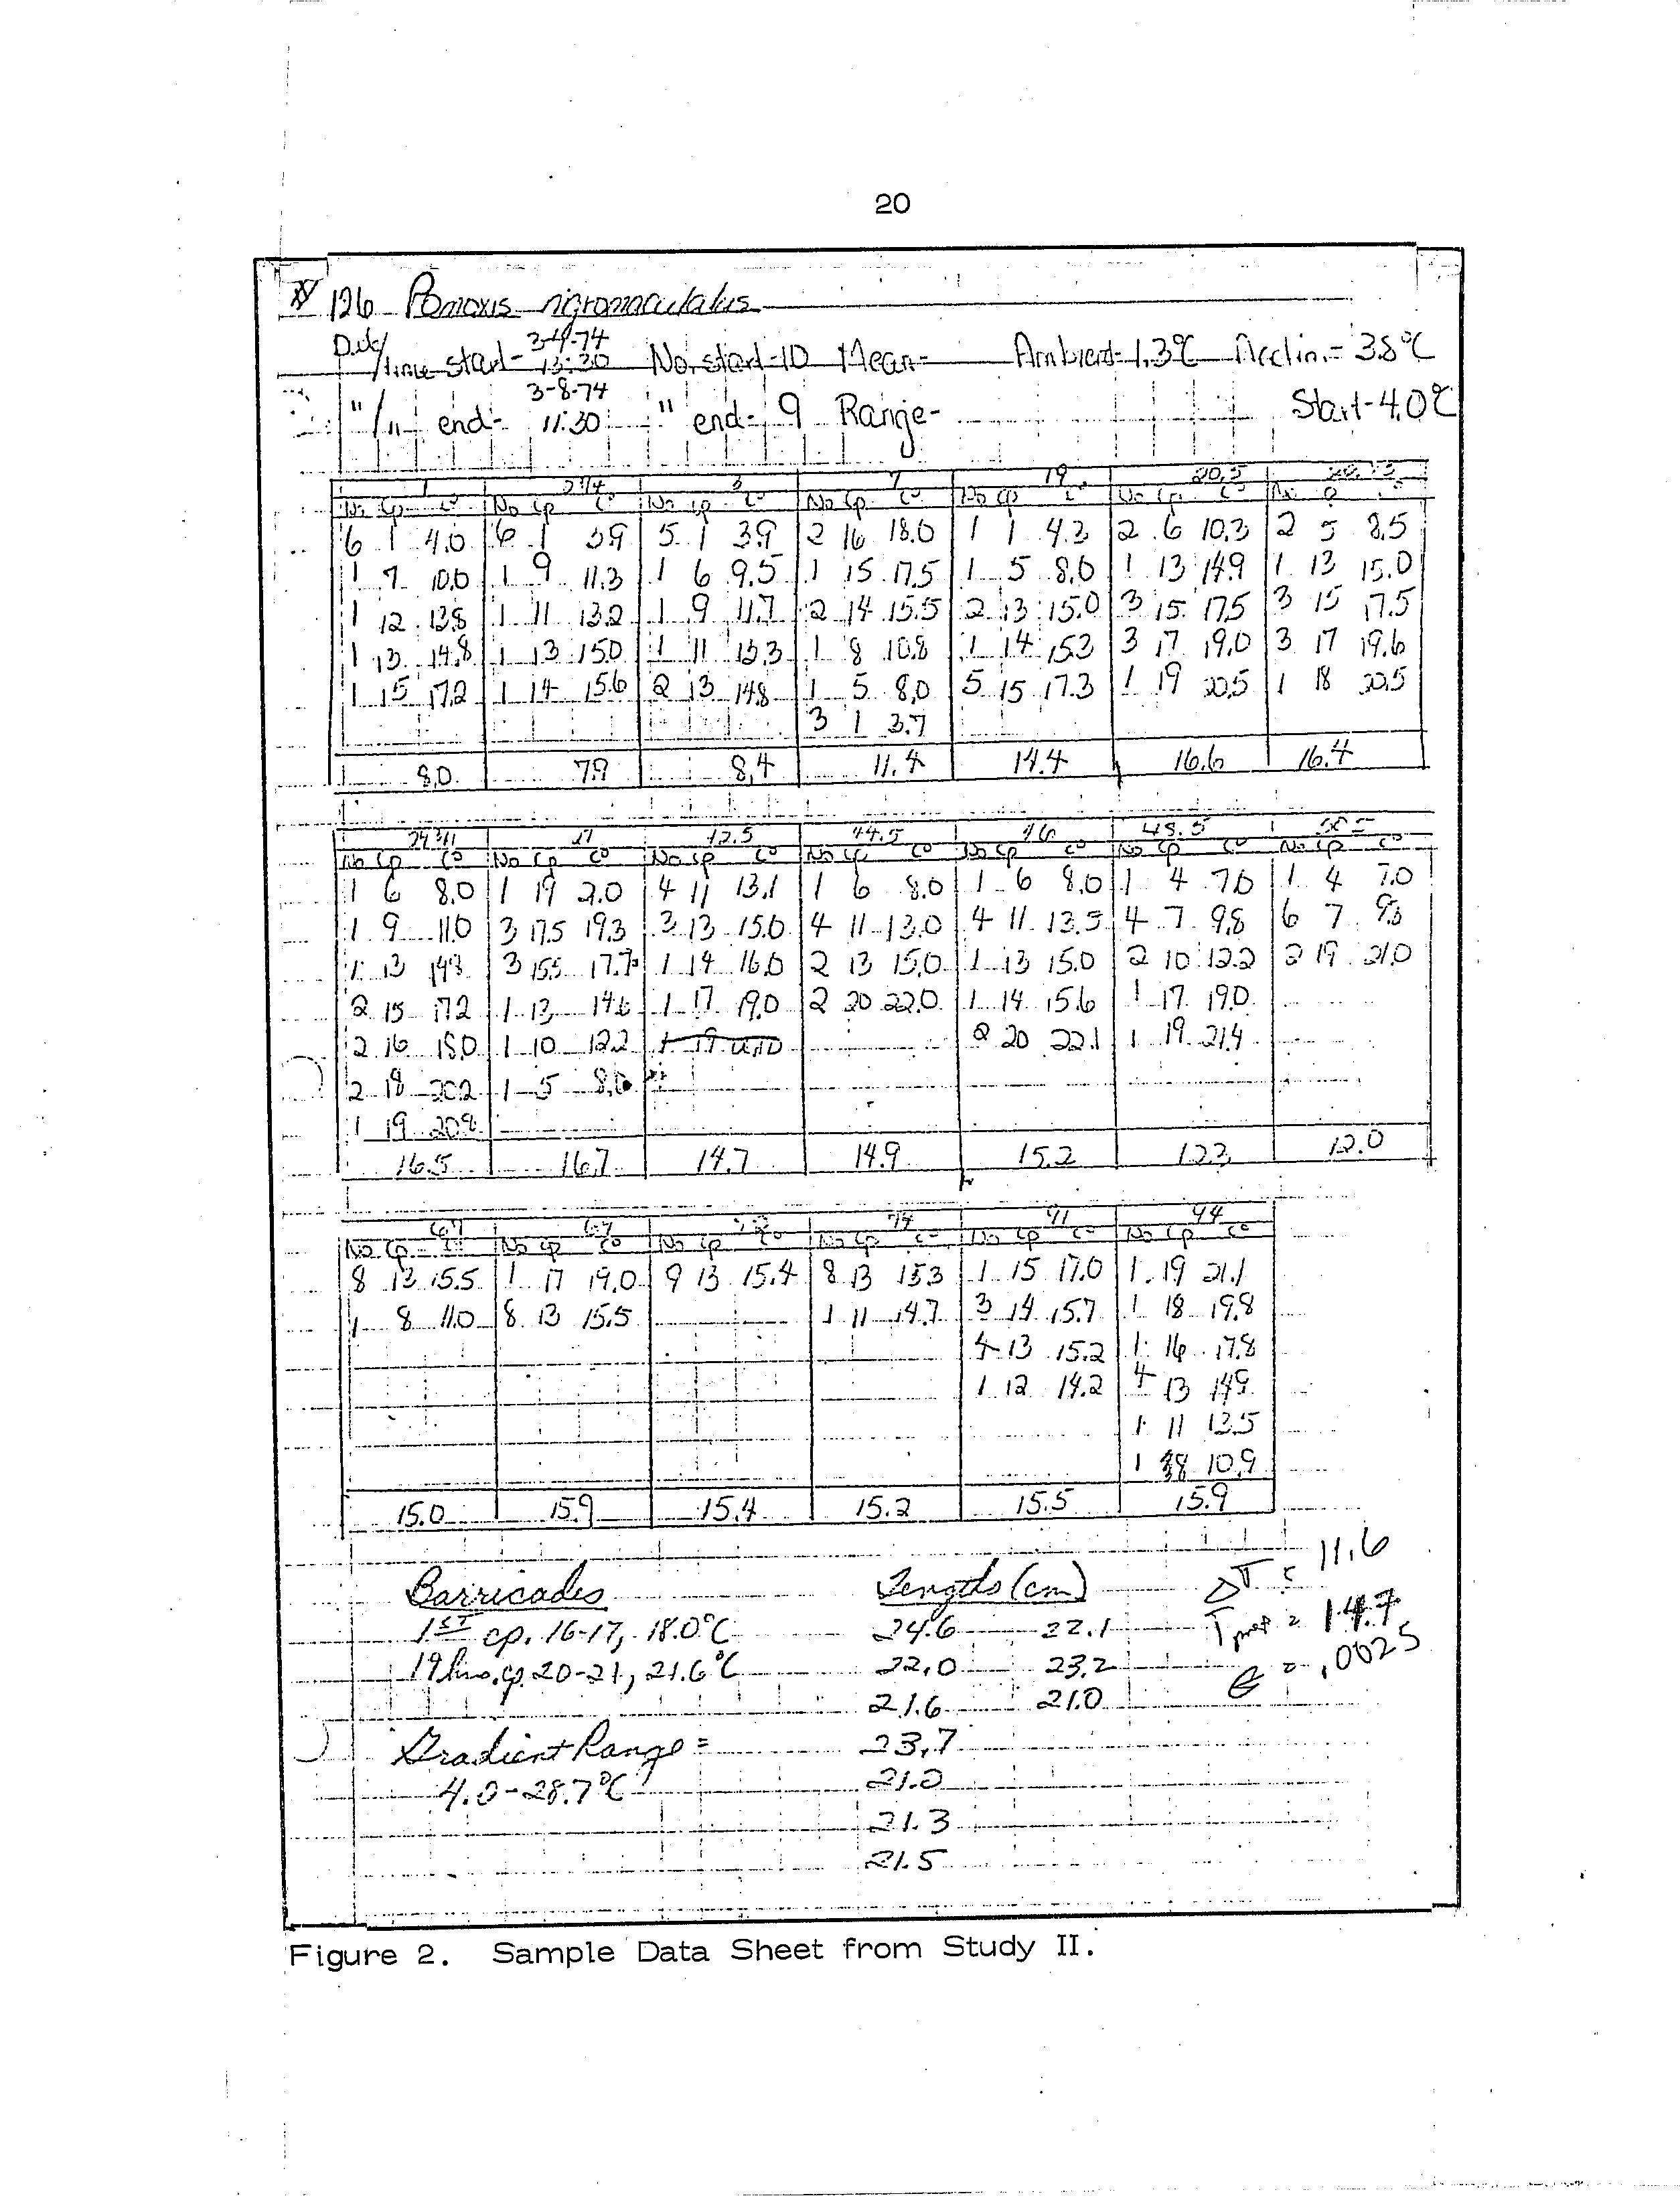 20
126 Pomoxis nigromaculatus
Date/time start- 3-4-74 13:30 No. start-10 Mean- Ambient-1.3°C Acclim.- 3.8°C
"/" end- 3-8-74 11:30 " end- 9 Range- Start-4.0°C
1 2 1/4 3 7 19 20.5
No Cp C° No Cp C° No Cp C° No Cp C° No Cp C° No Cp C° No Cp C°
6 1 4.0 6 1 3.9 5 1 3.9 2 16 18.0 1 1 4.3 2 6 10.3 2 5 8.5
1 7 10.0 1 9 11.3 1 6 9.5 1 15 17.5 1 5 8.0 1 13 14.9 1 13 15.0
1 12 13.8 1 11 13.2 1 9 11.7 2 14 15.5 2 13 15.0 3 15 17.5 3 15 17.5
1 13 14.8 1 13 15.0 1 11 13.3 1 8 10.8 1 14 15.3 3 17 19.0 3 17 19.6
1 15 17.2 1 14 15.6 2 13 14.8 1 5 8.0 5 15 17.3 1 19 20.5 1 18 20.5
3 1 3.7
8.0 7.9 8.4 11.4 14.4 16.6 16.4
44.5 46 48.5
No Cp C° No Cp C° No Cp C° No Cp C° No Cp C° No Cp C° No Cp C°
1 6 8.0 1 19 21.0 4 11 13.1 1 6 8.0 1 6 8.0 1 4 7.0 1 4 7.0
1 9 11.0 3 17.5 19.3 3 13 15.0 4 11 13.0 4 11 13.5 4 7 9.8 6 7 9.8
1 13 14.8 3 15.5 17.7 1 14 16.0 2 13 15.0 1 13 15.0 2 10 12.2 2 19 21.0
2 15 17.2 1 13 14.6 1 17 19.0 2 20 22.0 1 14 15.6 1 17 19.0
2 16 18.0 1 10 12.2 2 20 22.1 1 19 21.4
2 18 20.2 1 5 8.0
1 19 20.9
16.5 16.7 14.7 14.9 15.2 12.3 12.0
67 74 91 94
No Cp C° No Cp C° No Cp C° No Cp C° No Cp C° No Cp C°
8 13 15.5 1 17 19.0 9 13 15.4 8 13 15.3 1 15 17.0 1 19 21.1
1 8 11.0 8 13 15.5 1 11 14.7 3 14 15.7 1 18 19.8
4 13 15.2 1 16 17.8
1 12 14.2 4 13 14.9
1 11 13.5
1 8 10.9
15.0 15.9 15.4 15.2 15.5 15.9
Barricades Lengths (cm) ΔT = 11.6
1st cp. 16-17, 18.0°C 24.6 22.1 Tpref = 14.7
19 hrs. cp. 20-21, 21.6°C 22.0 23.2 = .0025
21.6 21.0
Gradient Range = 23.7
4.0-28.7°C 21.0
21.3
21.5
Figure 2. Sample Data Sheet from Study II.